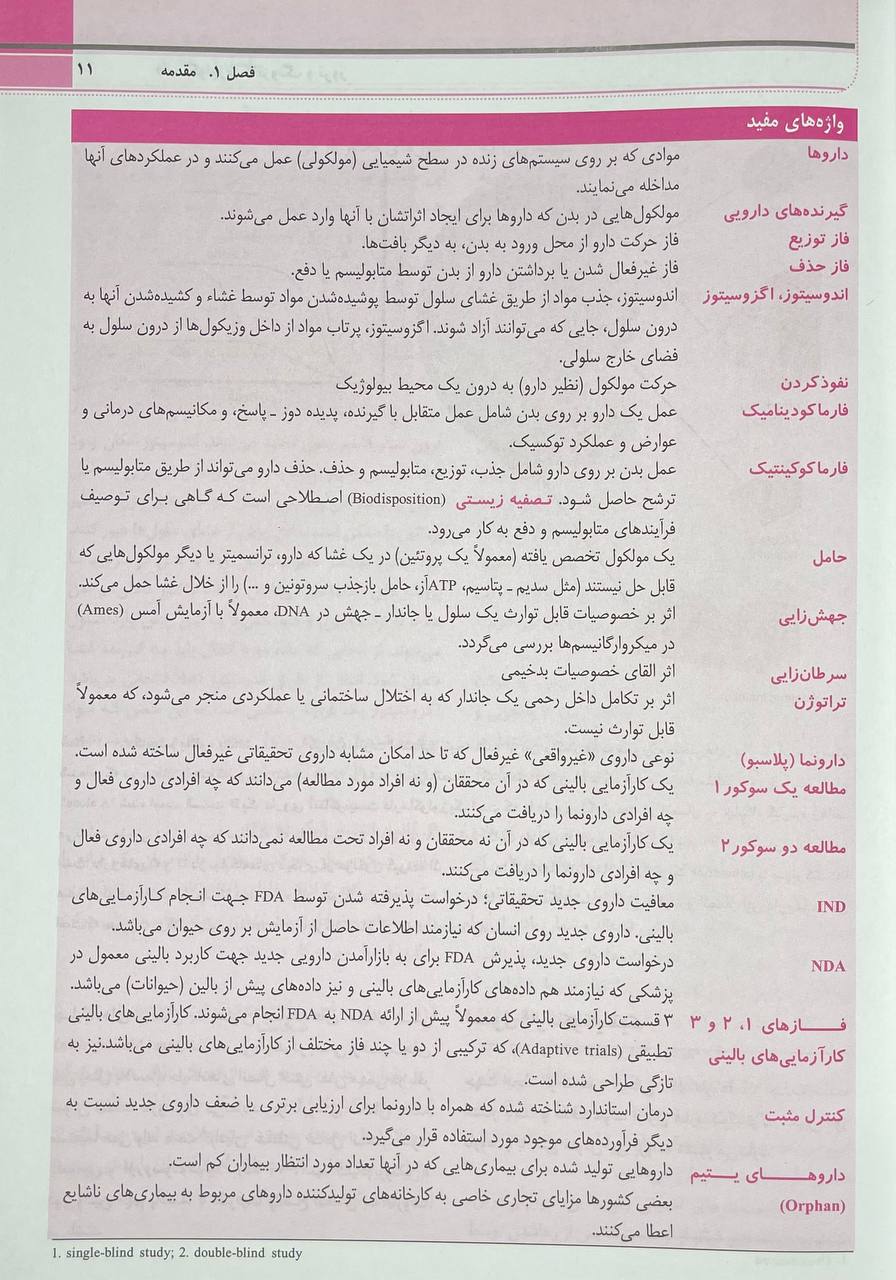 فصل ۱. مقدمه ۱۱
واژه‌های مفید
داروها موادی که بر روی سیستم‌های زنده در سطح شیمیایی (مولکولی) عمل می‌کنند و در عملکردهای آنها
مداخله می‌نمایند.
گیرنده‌های دارویی مولکول‌هایی در بدن که داروها برای ایجاد اثراتشان با آنها وارد عمل می‌شوند.
فاز توزیع فاز حرکت دارو از محل ورود به بدن، به دیگر بافت‌ها.
فاز حذف فاز غیرفعال شدن یا برداشتن دارو از بدن توسط متابولیسم یا دفع.
اندوسیتوز، اگزوسیتوز اندوسیتوز، جذب مواد از طریق غشای سلول توسط پوشیده‌شدن مواد توسط غشاء و کشیده‌شدن آنها به
درون سلول، جایی که می‌توانند آزاد شوند. اگزوسیتوز، پرتاب مواد از داخل وزیکول‌ها از درون سلول به
فضای خارج سلولی.
نفوذکردن حرکت مولکول (نظیر دارو) به درون یک محیط بیولوژیک
فارماکودینامیک عمل یک دارو بر روی بدن شامل عمل متقابل با گیرنده، پدیده دوز ـ پاسخ، و مکانیسم‌های درمانی و
عوارض و عملکرد توکسیک.
فارماکوکینتیک عمل بدن بر روی دارو شامل جذب، توزیع، متابولیسم و حذف. حذف دارو می‌تواند از طریق متابولیسم یا
ترشح حاصل شود. تصفیه زیستی (Biodisposition) اصطلاحی است که گاهی برای توصیف
فرآیندهای متابولیسم و دفع به کار می‌رود.
حامل یک مولکول تخصص یافته (معمولاً یک پروتئین) در یک غشا که دارو، ترانسمیتر یا دیگر مولکول‌هایی که
قابل حل نیستند (مثل سدیم ـ پتاسیم، ATPآز، حامل بازجذب سروتونین و ...) را از خلال غشا حمل می‌کند.
جهش‌زایی اثر بر خصوصیات قابل توارث یک سلول یا جاندار ـ جهش در DNA، معمولاً با آزمایش آمس (Ames)
در میکروارگانیسم‌ها بررسی می‌گردد.
سرطان‌زایی اثر القای خصوصیات بدخیمی
تراتوژن اثر بر تکامل داخل رحمی یک جاندار که به اختلال ساختمانی یا عملکردی منجر می‌شود، که معمولاً
قابل توارث نیست.
دارونما (پلاسبو) نوعی داروی «غیرواقعی» غیرفعال که تا حد امکان مشابه داروی تحقیقاتی غیرفعال ساخته شده است.
مطالعه یک سوکور۱ یک کارآزمایی بالینی که در آن محققان (و نه افراد مورد مطالعه) می‌دانند که چه افرادی داروی فعال و
چه افرادی دارونما را دریافت می‌کنند.
مطالعه دو سوکور۲ یک کارآزمایی بالینی که در آن نه محققان و نه افراد تحت مطالعه نمی‌دانند که چه افرادی داروی فعال
و چه افرادی دارونما را دریافت می‌کنند.
IND معافیت داروی جدید تحقیقاتی؛ درخواست پذیرفته شدن توسط FDA جهت انجام کارآزمایی‌های
بالینی. داروی جدید روی انسان که نیازمند اطلاعات حاصل از آزمایش بر روی حیوان می‌باشد.
NDA درخواست داروی جدید، پذیرش FDA برای به بازارآمدن دارویی جدید جهت کاربرد بالینی معمول در
پزشکی که نیازمند هم داده‌های کارآزمایی‌های بالینی و نیز داده‌های پیش از بالین (حیوانات) می‌باشد.
فازهای ۱، ۲ و ۳ ۳ قسمت کارآزمایی بالینی که معمولاً پیش از ارائه NDA به FDA انجام می‌شوند. کارآزمایی‌های بالینی
کارآزمایی‌های بالینی تطبیقی (Adaptive trials)، که ترکیبی از دو یا چند فاز مختلف از کارآزمایی‌های بالینی می‌باشد.نیز به
تازگی طراحی شده است.
کنترل مثبت درمان استاندارد شناخته شده که همراه با دارونما برای ارزیابی برتری یا ضعف داروی جدید نسبت به
دیگر فرآورده‌های موجود مورد استفاده قرار می‌گیرد.
داروهای یتیم داروهایی تولید شده برای بیماری‌هایی که در آنها تعداد مورد انتظار بیماران کم است.
(Orphan) بعضی کشورها مزایای تجاری خاصی به کارخانه‌های تولیدکننده داروهای مربوط به بیماری‌های ناشایع
اعطا می‌کنند.
1. single-blind study; 2. double-blind study